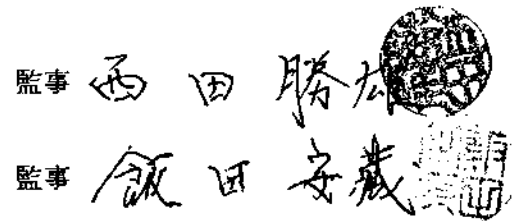 監事 西田勝雄
監事 飯田安蔵